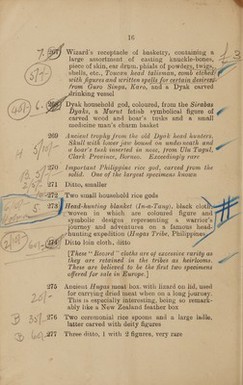 16
267 Wizard's receptacle of basketry, containing a
large assortment of casting knuckle-bones,
piece of skin, ear drum, phials of powders, twigs,
shells, etc., Toucan head talisman, comb etched
with figures and written spells for certain desires
from Guro Simpa, Karo, and a Dyak carved
drinking vessel
268 Dyak household god, coloured, from the Sirabas
Dyaks, a Murut fetish symbolical figure of
carved wood and boar's tusks and a small
medicine man's charm basket
269 Ancient trophy from the old Dyak head hunters.
Skull with lower jaw bound on underneath and
a boar's tusk inserted in nose, from Ulu Tugal,
Clark Province, Borneo. Exceedingly rare
270 Important Philippine rice god, carved from the
solid. One of the largest specimens known
271 Ditto, smaller
272 Two small household rice gods
273 Head-hunting blanket, black cloth,
woven in which are coloured figure and
symbolic designs representing a warrior's
journey and adventures on a famous head-
hunting expedition
274 Ditto loin cloth, ditto
[These "Record" cloths are of excessive rarity as
they are retained in the tribes as heirlooms.
These are believed to be the first two specimens
offered for sale in Europe.]
275 Ancient Hupas meat box, with lizard on lid, used
for carrying dried meat when on a long journey.
This is especially interesting, being so remark-
ably like a New Zealand feather box
276 Two ceremonial rice spoons and a large ladle,
latter carved with deity figures
277 Three ditto, 1 with 2 figures, very rare